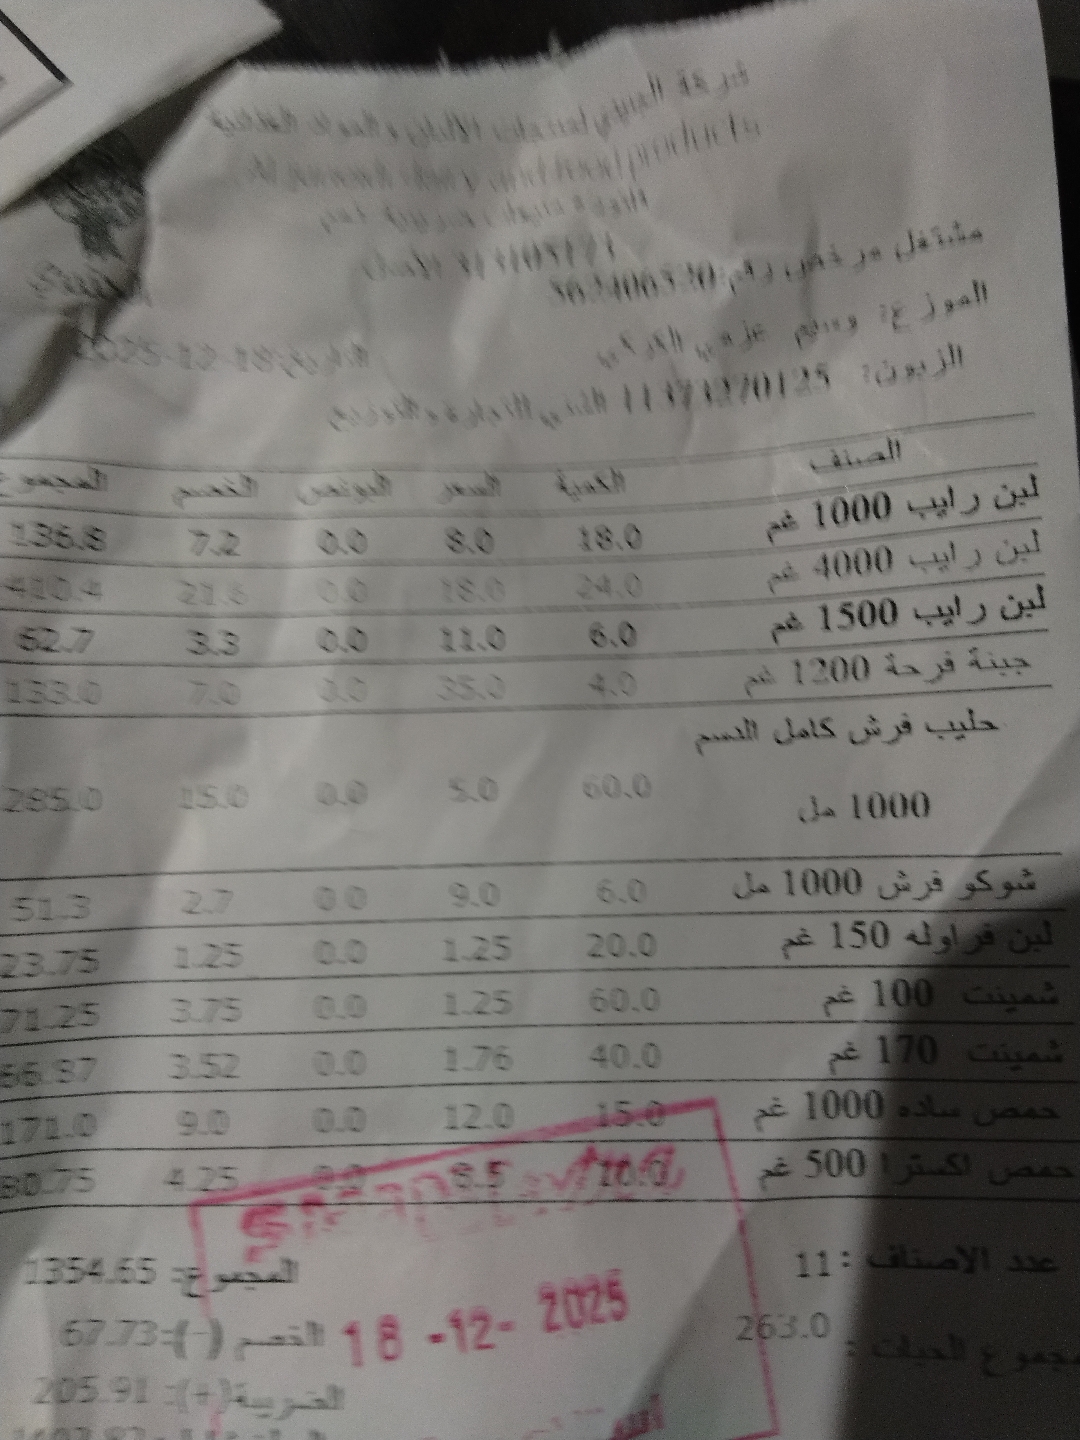 شركة الجنيدي لمنتجات الألبان والمواد الغذائية
Al juneidi dairy and food products
مشتغل مرخص رقم: 562406320
الموزع: وسيم عزمي الكركي
الزبون: 11373270125 للتجارة والتوزيع
التاريخ: 2025-12-18
الصنف الكمية السعر البونص الخصم المجموع
لبن رايب 1000 غم 18.0 8.0 0.0 7.2 136.8
لبن رايب 4000 غم 24.0 18.0 0.0 21.6 410.4
لبن رايب 1500 غم 6.0 11.0 0.0 3.3 62.7
جبنة فرحة 1200 غم 4.0 35.0 0.0 7.0 133.0
حليب فرش كامل الدسم
1000 مل 60.0 5.0 0.0 15.0 285.0
شوكو فرش 1000 مل 6.0 9.0 0.0 2.7 51.3
لبن فراوله 150 غم 20.0 1.25 0.0 1.25 23.75
شمينت 100 غم 60.0 1.25 0.0 3.75 71.25
شمينت 170 غم 40.0 1.76 0.0 3.52 66.87
حمص ساده 1000 غم 15.0 12.0 0.0 9.0 171.0
حمص اكسترا 500 غم 10.0 8.5 0.0 4.25 80.75
عدد الاصناف : 11 المجموع: 1354.65
مجموع الحبات : 263.0 الخصم (-): 67.73
18 -12- 2025
الضريبة(+): 205.91